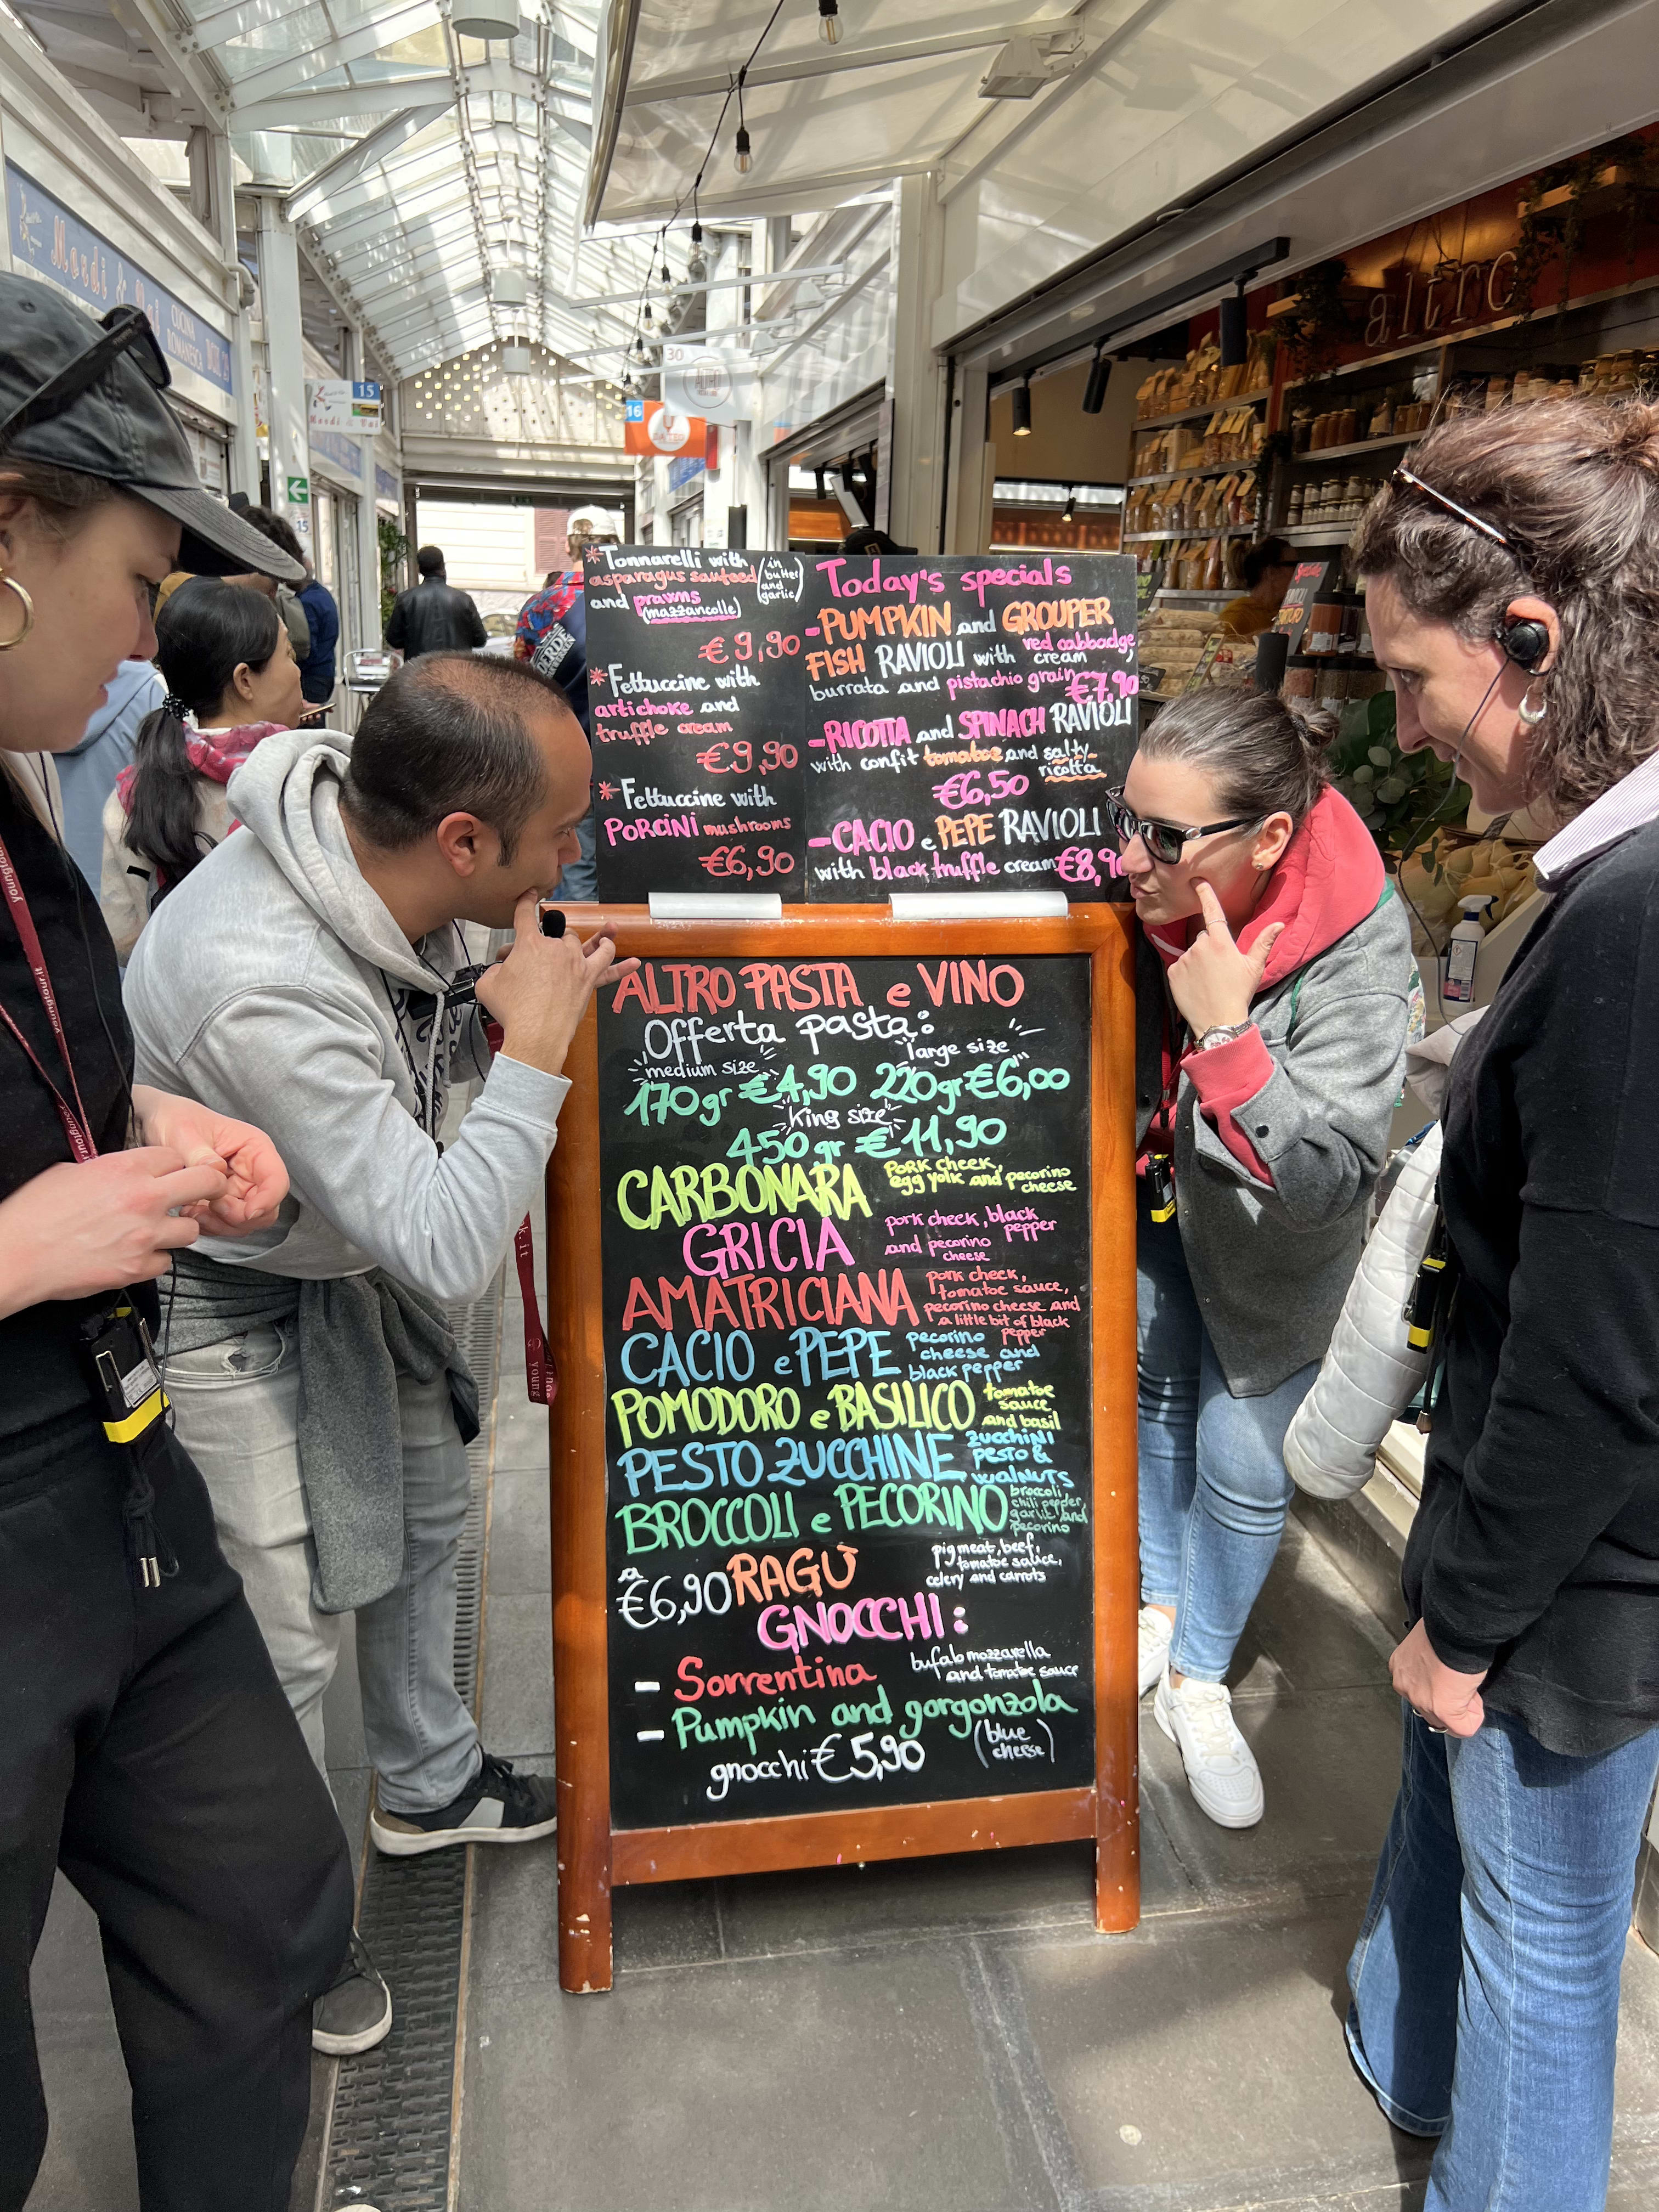 Mordi & Vai
CUCINA
ROMANESCA
BOX
15
Mordi & Vai
15
16
30
ALTRO
altro
* Tonnarelli with
asparagus sauteed (in butter and garlic)
and prawns
(mazzancolle)
€9,90
* Fettuccine with
artichoke and
truffle cream
€9,90
* Fettuccine with
PORCINI mushrooms
€6,90
Today's specials
-PUMPKIN and GROUPER
FISH RAVIOLI with red cabbadge cream,
burrata and pistachio grain €7,90
-RICOTTA and SPINACH RAVIOLI
with confit tomatoe and salty
ricotta
€6,50
-CACIO e PEPE RAVIOLI
with black truffle cream €8,90
ALTRO PASTA e VINO
Offerta pasta:
medium size large size
170gr €4,90 220gr €6,00
King size
450gr € 11,90
CARBONARA pork cheek,
egg yolk and pecorino
cheese
GRICIA pork cheek, black
pepper
and pecorino
cheese
AMATRICIANA pork cheek,
tomatoe sauce,
pecorino cheese and
a little bit of black
pepper
CACIO e PEPE pecorino
cheese and
black pepper
POMODORO e BASILICO tomatoe
sauce
and basil
PESTO ZUCCHINE zucchini
pesto &
walnuts
BROCCOLI e PECORINO broccoli,
chili pepper,
garlic and
pecorino
a €6,90 RAGÙ pig meat, beef,
tomatoe sauce,
celery and carrots
GNOCCHI:
- Sorrentina bufalo mozzarella
and tomatoe sauce
- Pumpkin and gorgonzola
gnocchi €5,90 (blue
cheese)